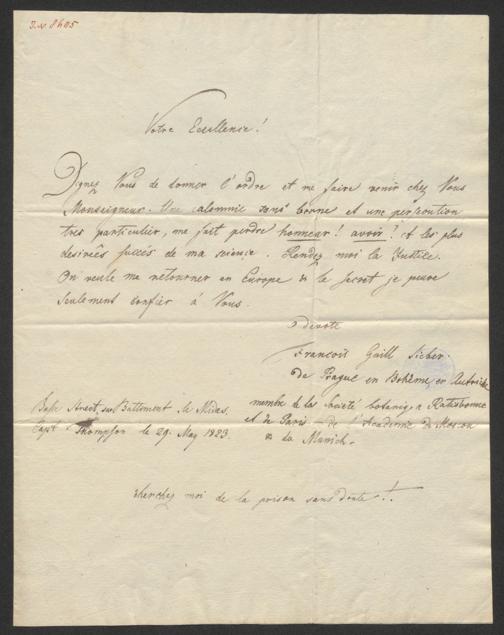 J.N. 8405
Votre Excellense!
Dignez Vous de donner l'ordre et me faire venir chez Vous
Monseigneur. Une calomnie sans borne et une persecution
tres particulier, me fait perdre honneur! avoir! et les plus
desirées succés de ma science. Rendez moi la Justice.
On veule me retourner en Europe & le secret je peuve
seulement confier à Vous.
Devote
Francois Guill Sieber.
de Prague en Bohème en Autriche
membre de las Societé botaniq a Ratisbonne
et de Paris de l'Academie de Moscou
& da Munich.
Bass Street, sur Battement le Midas.
Capt Thompson le 29. May 1823.
cherchez moi de la prison sans doute!!